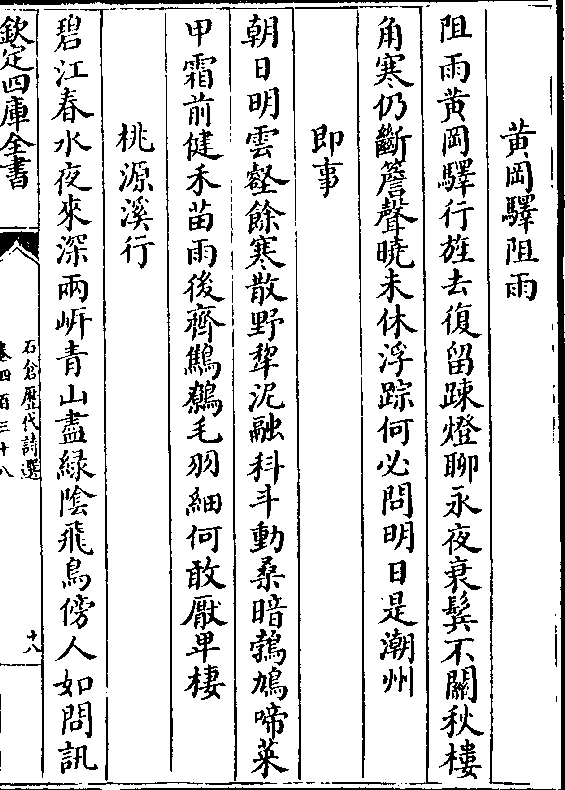 黄岡驛阻雨
阻雨黄岡驛行旌去復留踈燈聊永夜衰鬂不關秋樓
角寒仍斷簷聲曉未休浮踪何必問明日是潮州
即事
朝日明雲壑餘寒散野犂泥融科斗動桑暗鵓鳩啼菜
甲霜前健禾苗雨後齊鷦鷯毛羽細何敢厭卑棲
桃源溪行
碧江春水夜來深兩岍青山盡緑陰飛鳥傍人如問訊
欽定四庫全書
石倉歴代詩選
卷四百三十八
十八